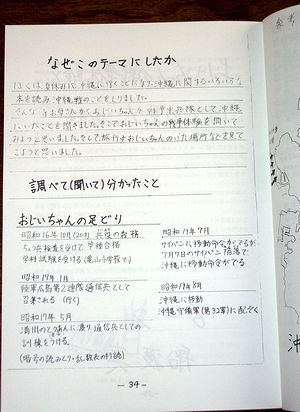 なぜこのテーマにしたか
ぼくは、夏休みに沖縄に行くことになり、沖縄に関するいろいろな
本を読み沖縄戦のことをしりました。
そんな時お母さんからおじいちゃんが
兵隊として沖縄
にいたことを聞きました。そこでおじいちゃんの戦争体験を聞いて
みようと思いました。そして、旅行中おじいちゃんのいた場所などを見て
こようと思いました。
調べて(聞いて)分かったこと
おじいちゃんの足どり
昭和16年10月(20才) 兵役の義務
ちょう兵検査を受けて甲種合格
学科試験を受ける(
小学校で)
昭和17年1月
陸軍広島第2連隊通信兵として
召集される (行く)
昭和17年5月
満州の
に渡り通信兵としての
訓練をうける。
(暗号の読みとり・乱数表の解読)
昭和19年7月
サイパンに移動命令がでるが
7月7日のサイパン陥落で
沖縄に移動命令がでる
昭和19年8月
沖縄に移動
沖縄守備軍(第32軍)に配ぞく
― 34 ―
沖